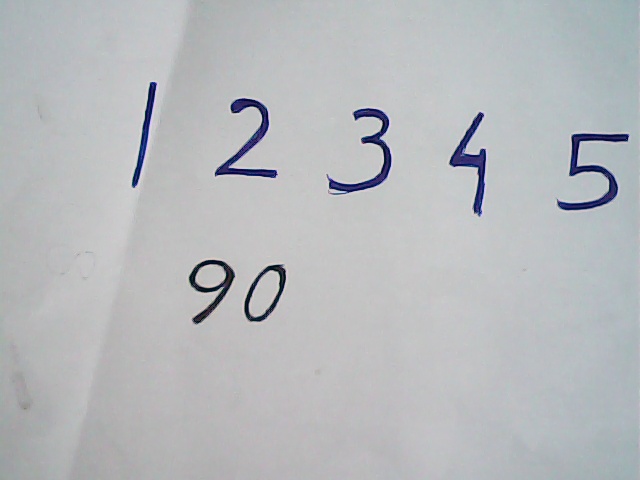 1 2 3 4 5
90